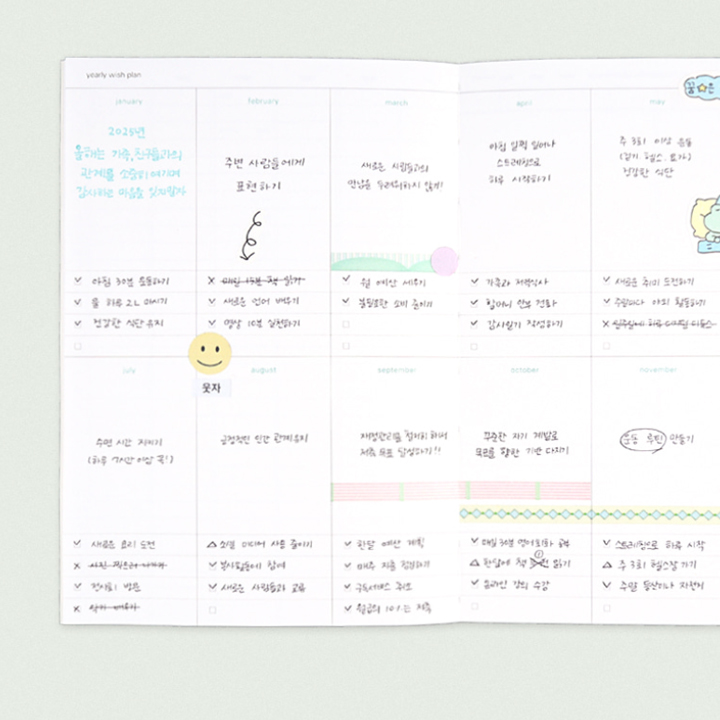 yearly wish plan
january
2025년
올해는 가족, 친구들과의
관계를 소중히 여기며
감사하는 마음을 잊지말자
✓ 아침 30분 운동하기
✓ 물 하루 2L 마시기
✓ 건강한 식단 유지
february
주변 사람들에게
표현하기
✗ 매일 15분 책 읽기
✓ 새로운 언어 배우기
✓ 명상 10분 실천하기
march
새로운 사람들과의
만남을 두려워하지 않기!
✓ 월 예산 세우기
✓ 불필요한 소비 줄이기
april
아침 일찍 일어나
스트레칭으로
하루 시작하기
✓ 가족과 저녁식사
✓ 할머니 안부 전화
✓ 감사일기 작성하기
may
주 3회 이상 운동
(걷기, 헬스, 요가)
건강한 식단
✓ 새로운 취미 도전하기
✓ 주말마다 야외 활동하기
✗ 하루 디지털 디톡스
꿈 은
july
수면 시간 지키기
(하루 7시간 이상 꼭!)
✓ 새로운 요리 도전
✗ 사진
✓ 전시회 방문
✗ 배우기
웃자
august
긍정적인 인간 관계 유지
△ 소셜 미디어 사용 줄이기
✓ 봉사활동에 참여
✓ 새로운 사람들과 교류
september
재정관리를 철저히 해서
저축 목표 달성하기!!
✓ 한달 예산 계획
✓ 매주 지출 정리하기
✓ 구독서비스 취소
✓ 월급의 10%는 저축
october
꾸준한 자기 계발로
목표를 향한 기반 다지기
✓ 매일 30분 영어회화 공부
△ 한달에 책 읽기
✓ 온라인 강의 수강
november
운동 루틴 만들기
✓ 스트레칭으로 하루 시작
△ 주 3회 헬스장 가기
✓ 주말 등산이나 자전거